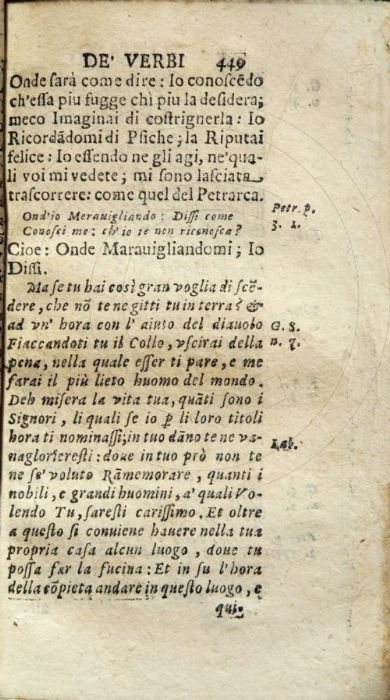 DE' VERBI 449
Onde sarà come dire: Io conoscēdo
ch'essa piu fugge chì piu la desidera;
meco Imaginai di costrignerla: Io
Ricordādomi di Psiche; la Riputai
felice: Io essendo ne gli agi, ne'qua-
li voi mi vedete; mi sono lasciata
trascorrere: come quel del Petrarca.
Ond'io Merauigliando: Dissi come
Conosci me: ch'io te non riconosca?
Petr. p.
3. 1.
Cioe: Onde Marauigliandomi; Io
Dissi.
Ma se tu hai così gran voglia di scē-
dere, che nō te ne gitti tu in terra? &
ad vn' hora con l' aiuto del diauolo
Fiaccandoti tu il Collo, vscirai della
pena, nella quale esser ti pare, e me
farai il più lieto huomo del mondo.
G. 8.
n. 7.
Deh misera la vita tua, quāti sono i
Signori, li quali se io p̄ li loro titoli
hora ti nominassi; in tuo dāno te ne va-
naglorieresti: doue in tuo prò non te
ne se' voluto Rāmemorare, quanti i
nobili, e grandi huomini, a' quali Vo-
lendo Tu, saresti carissimo. Et oltre
a questo si conuiene hauere nella tua
propria casa alcun luogo, doue tu
possa far la fucina: Et in su l'hora
della cōpieta andare in questo luogo, e
Lab.
qui